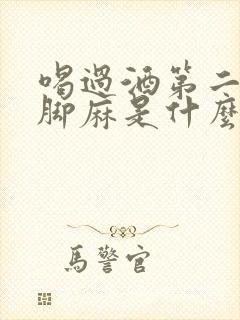 喝過酒第二
腳麻是什麼
馬警官